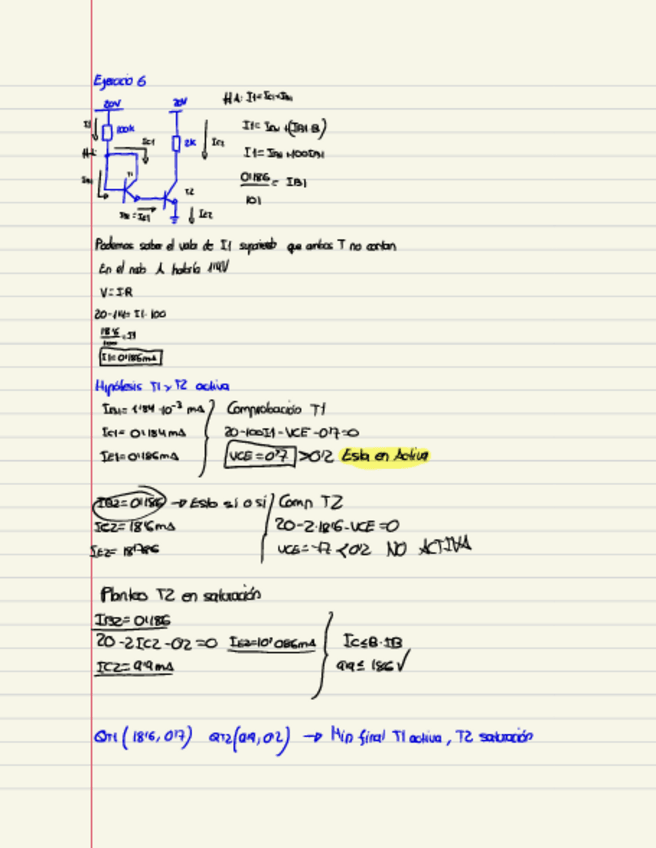 Ejercicio 6
20V 20V
I1 100k IC1 2K IC2
T1 T2
IE2
I1=
I1= IB1+100IB1
0'186 = IB1
101
Podemos saber el valor de I1 suponiendo que ambos T no cortan
En el nodo A habría 1'4V
V=I·R
20-1'4= I1·100
18'6 = I1
I1=0'186mA
Hipótesis T1 y T2 activa
IB1= 1'84·10⁻³ mA Comprobación T1
IC1= 0'184mA 20-100I1-VCE-0'7=0
IE1=0'186mA VCE=0'7 >0'2 Esta en Activa
IB2=0'186 → Esto sí o sí Comp T2
IC2= 18'6mA 20-2·18'6-VCE=0
IE2= 18'786 VCE=-17 <0'2 NO ACTIVA
Planteo T2 en saturación
IB2=0'186
20-2IC2-0'2=0 IE2=10'086mA IC≤B·IB
IC2=9'9mA 9'9≤18'6 √
QT1(18'6, 0'7) QT2(9'9, 0'2) → Hip final T1 activa, T2 saturación